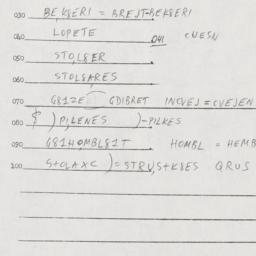 030 BE,K8ERI = BREJT-BEK8ERI
040 LUPETE 041 CVESN
050 STOL8ER
060 STOL8ARES
070 G81ZE GDIBRET INCVEJ = CVEJEN
080 $ ) PILENES ) - PILKES
090 G81HOMBL81T HOMBL = HEMB
100 S+OLAXC ) = STRUS+K8ES QRUS